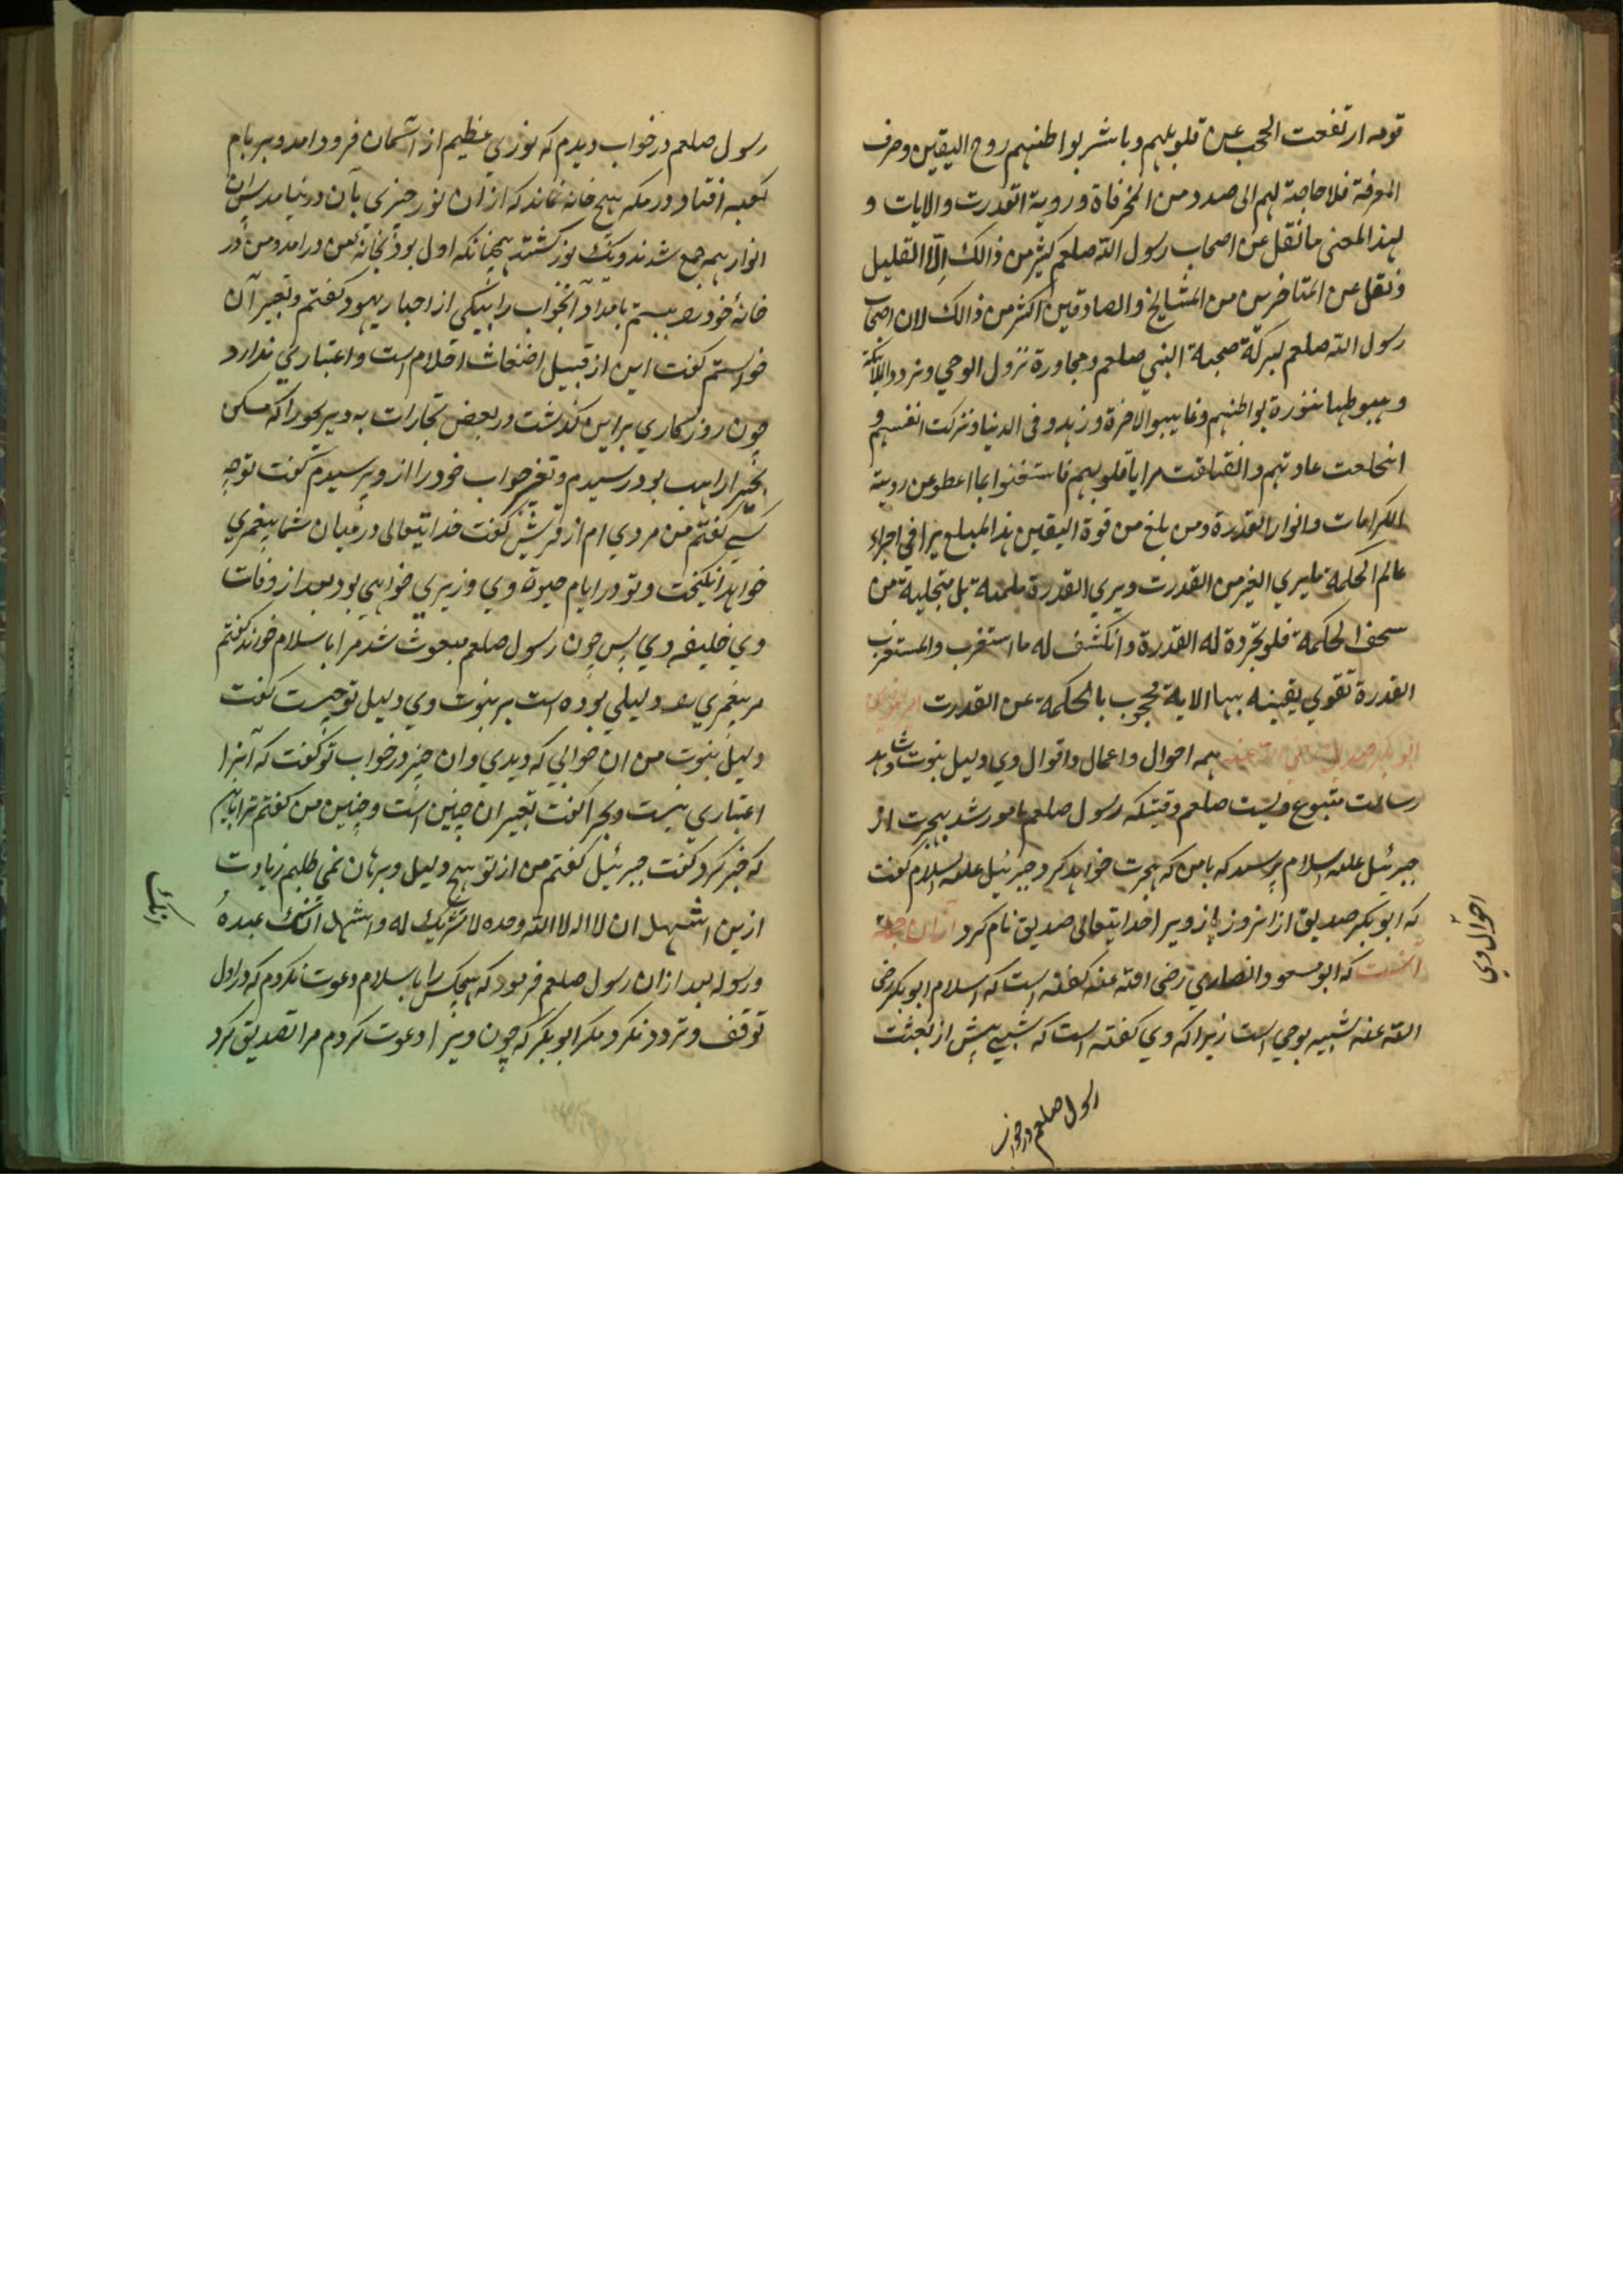 قومه ارتفعت الحجب عن قلوبهم وباشر بواطنهم روح الیقین وصرف
المعرفة فلا حاجة لهم الی صدد من المخرفاة و رویة القدرت والایات و
لهذا المعنی ما نقل عن اصحاب رسول الله صلعم کثیر من ذالک الّا القلیل
ونقل عن المتاخرین من المشایخ والصادقین اکثر من ذالک لان اصحاب
رسول الله صلعم لبرکة صحبة النبی صلعم ومجاورة نزول الوحی وتردد الملائکة
و هبوطها بواطنهم وعاینوا الاخرة و زهدو فی الدنیا و تزکت انفسهم و
انخلعت عادتهم و قلوبهم فاستغنوا بما اعطو عن رویة
الکرامات وانوار القدرة ومن بلغ من قوة الیقین هذا المبلغ یرا فی اجزاء
عالم الحکمة ما یری الغیر من القدرت ویری القدرة بل متجلیة من
سحف الحکمة فلو تجردة له القدرة وانکشف له ما استغرب والمستغرب
القدرة تقوی یقینه بها الایة محجوب بالحکمة عن القدرت
ابو بکر صدیق رضی الله عنه همه احوال و اعمال و اقوال وی دلیل نبوت و شاهد
رسالت متبوع ویست صلعم وقتیکه رسول صلعم مامور شد بهجرت از
جبرئیل علیه السلام پرسید که با من که هجرت خواهد کرد جبرئیل علیه السلام گفت
که ابو بکر صدیق از انروز باز ویرا خدایتعالی صدیق نام کرد از ان جمله
انست که ابو مسعود انصاری رضی الله عنه گفته است که اسلام ابو بکر رضی
الله عنه شبیه بوحی است زیرا که وی گفته است که شبی پیش از بعثت
رسول صلعم در خواب
احوال وی
رسول صلعم در خواب دیدم که نوری عظیم از اسمان فرود امد و بر بام
کعبه افتاد و در مکه هیچ خانه نماند که از ان نور چیزی بآن در نیامد پس ان
انوار همه جمع شدند و یک نور گشتند همچنانکه اول بود و بخانه من در امد و من در
خانهٔ خود را ببستم بامداد آنخواب را بیکی از احبار یهود گفتم وتعبیر آن
خواستم گفت این از قبیل اضغاث احلام است و اعتباری ندارد
چون روزگاری برایں گذشت در بعض تجارات به دیر بحیرا که مسکن
بحیرا راهب بود رسیدم و تعبیر خواب خود را از وی پرسیدم گفت تو چه
کسی گفتم من مردی ام از قریش گفت خدایتعالی در میان شما پیغمبری
خواهد انگیخت و تو در ایام حیوة وی وزیر وی خواهی بود بعد از وفات
وی خلیفه وی پس چون رسول صلعم مبعوث شد مرا باسلام خواند گفتم
هر پیغمبری را دلیلی بوده است بر نبوت وی دلیل تو چیست گفت
دلیل نبوت من ان خوابی که دیدی و ان حبر در خواب تو گفت که آنرا
اعتباری نیست و بحیرا گفت تعبیر ان چنین است و چنین من گفتم ترا باین
که خبر کرد گفت جبرئیل گفتم من از تو هیچ دلیل و برهان نمی طلبم زیادت
ازین اشهد ان لا اله الا الله وحده لا شریک له و اشهد انک عبدهٔ
ورسوله بعد از ان رسول صلعم فرمود که هیچکس را باسلام دعوت نکردم که در اول
توقف و تردد نکرد مگر ابو بکر که چون ویرا دعوت کردم مرا تصدیق کرد